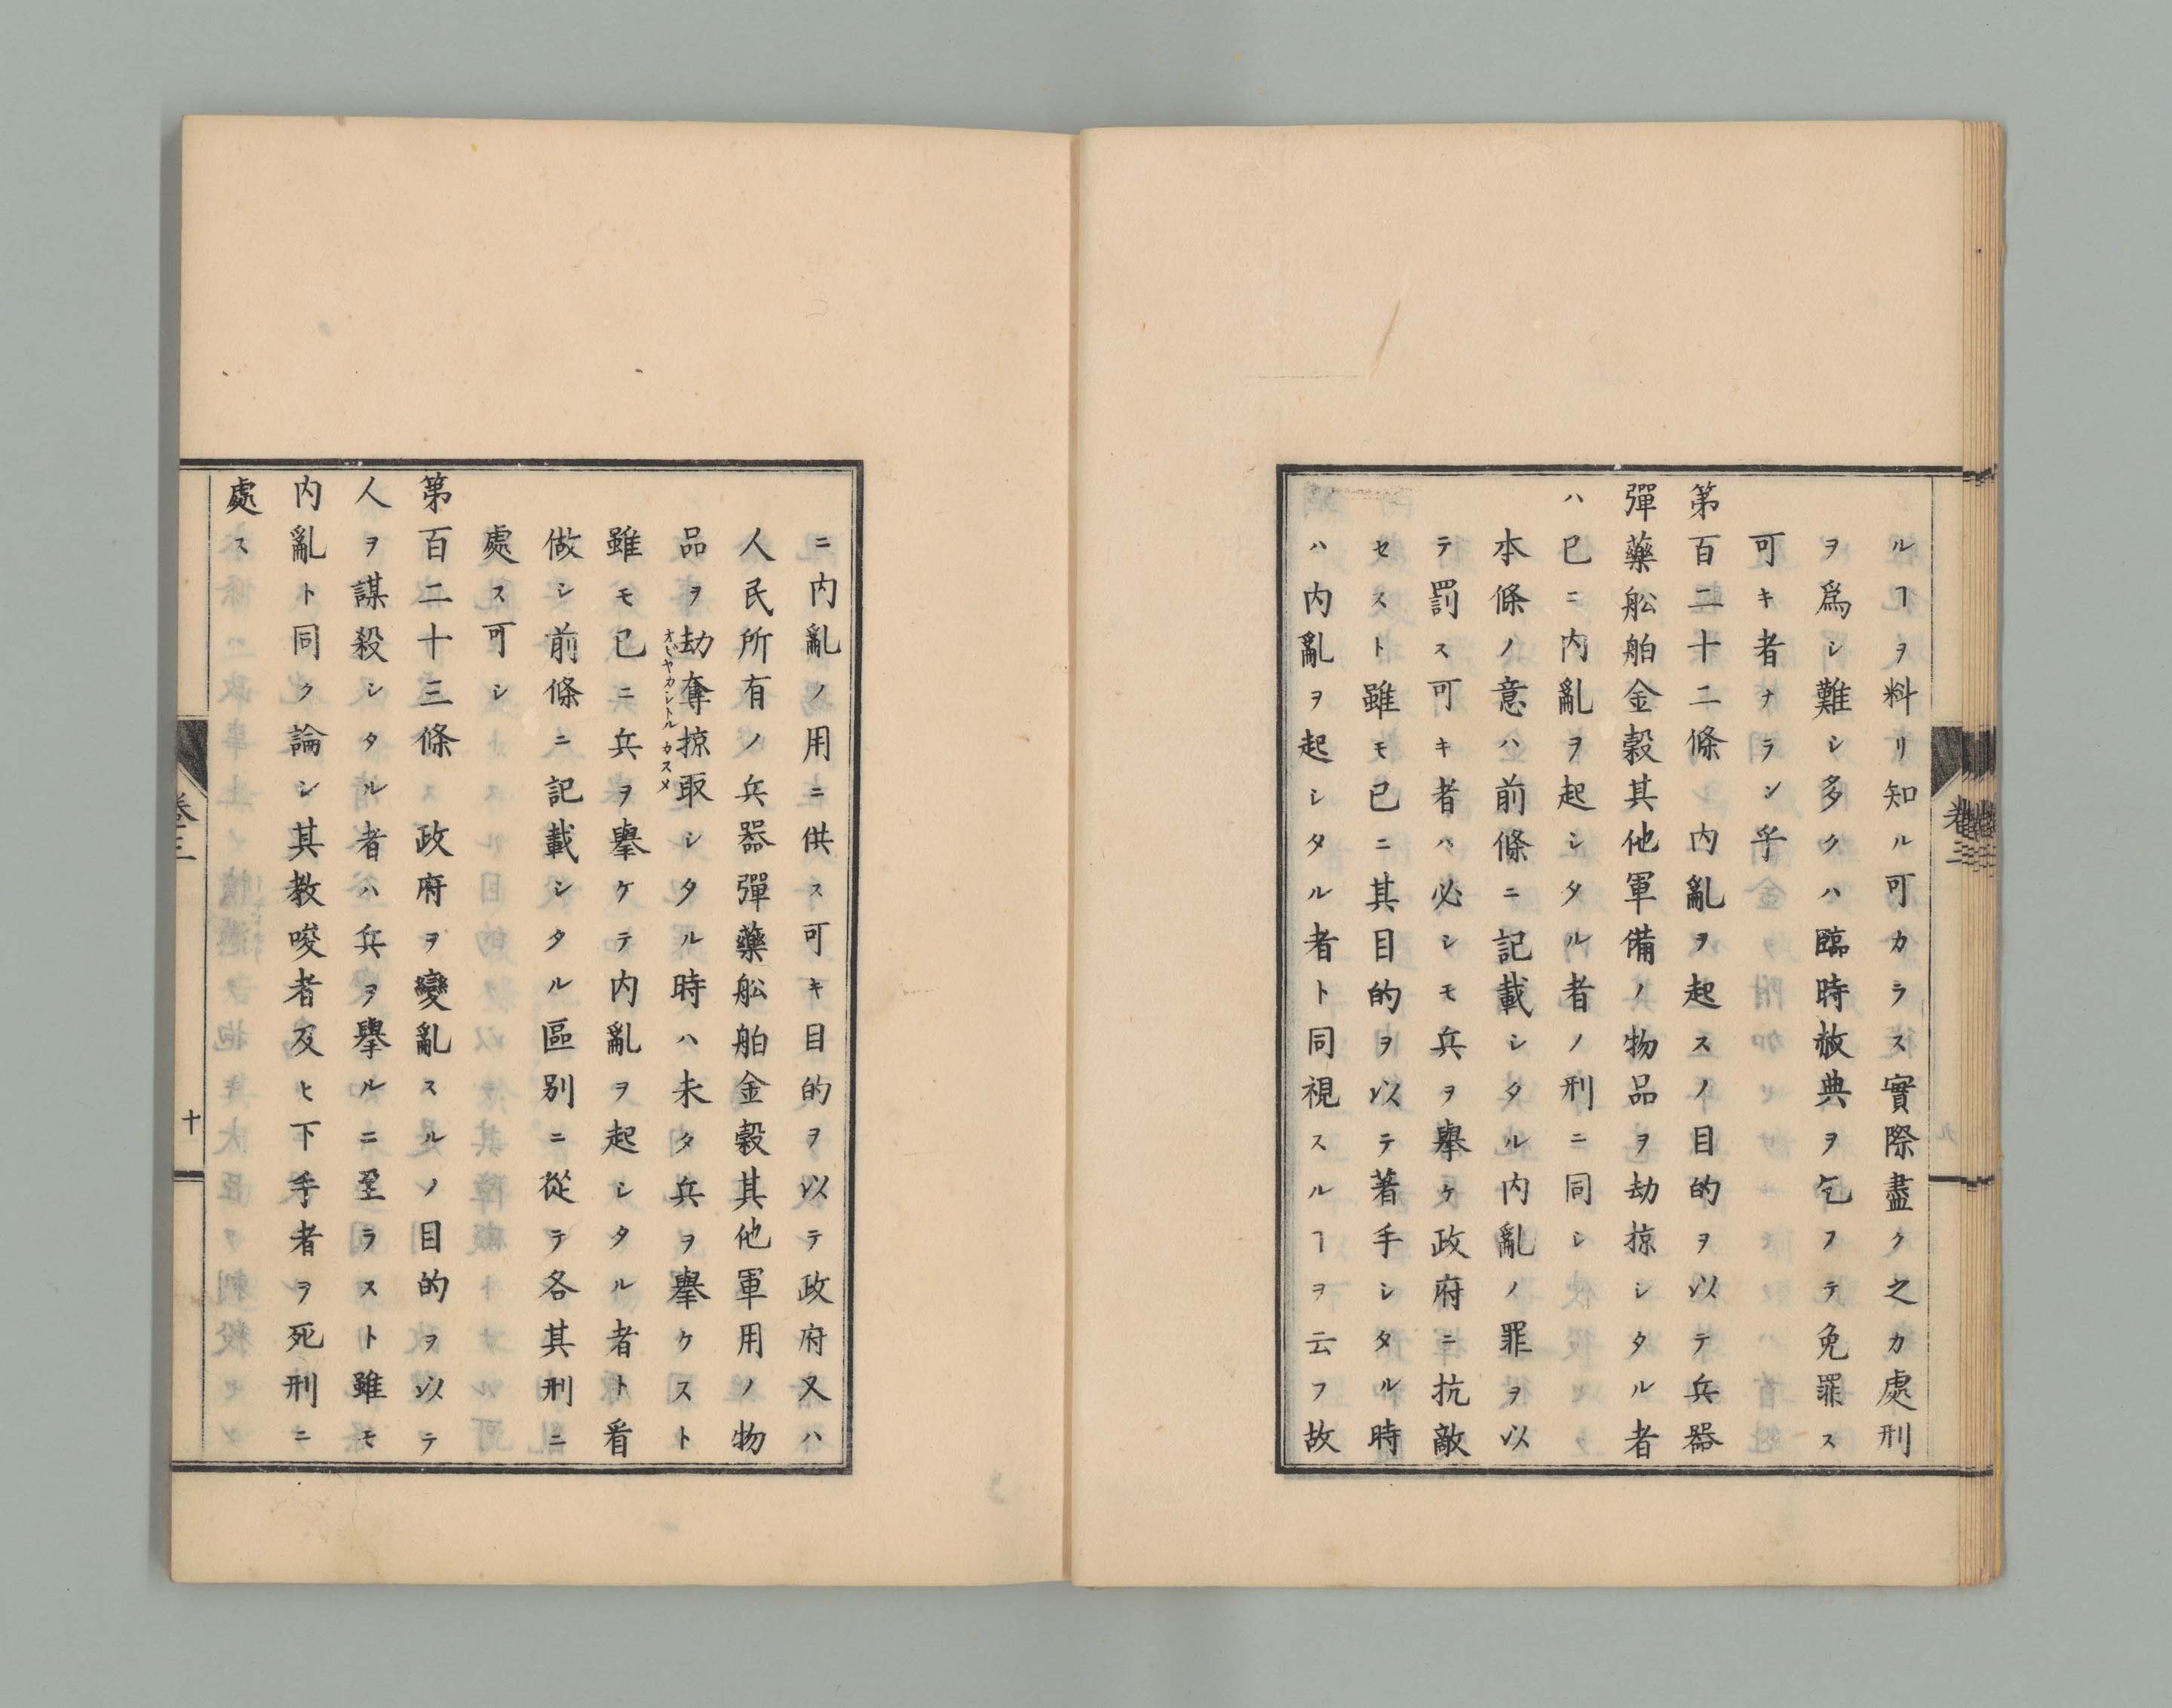 ルヿヲ料リ知ル可カラス實際盡ク之カ處刑
ヲ爲シ難シ多クハ臨時赦典ヲ乞フテ免罪ス
可キ者ナラン乎
第百二十二條 內亂ヲ起スノ目的ヲ以テ兵器
彈藥舩舶金穀其他軍備ノ物品ヲ劫掠シタル者
ハ已ニ內亂ヲ起シタル者ノ刑ニ同シ
本條ノ意ハ前條ニ記載シタル內亂ノ罪ヲ以
テ罰ス可キ者ハ必シモ兵ヲ擧ケ政府ニ抗敵
セスト雖モ已ニ其目的ヲ以テ著手シタル時
ハ內亂ヲ起シタル者ト同視スルヿヲ云フ故
卷三
ニ內亂ノ用ニ供ス可キ目的ヲ以テ政府又ハ
人民所有ノ兵器彈藥舩舶金穀其他軍用ノ物
品ヲ劫奪掠取シタル時ハ未タ兵ヲ擧ケスト
オビヤカシトル カスメ
雖モ已ニ兵ヲ擧ケテ內亂ヲ起シタル者ト看
做シ前條ニ記載シタル區別ニ從テ各其刑ニ
處ス可シ
第百二十三條 政府ヲ變亂スルノ目的ヲ以テ
人ヲ謀殺シタル者ハ兵ヲ擧ルニ至ラスト雖モ
內亂ト同ク論シ其教唆者及ヒ下手者ヲ死刑ニ
處ス
卷三
十